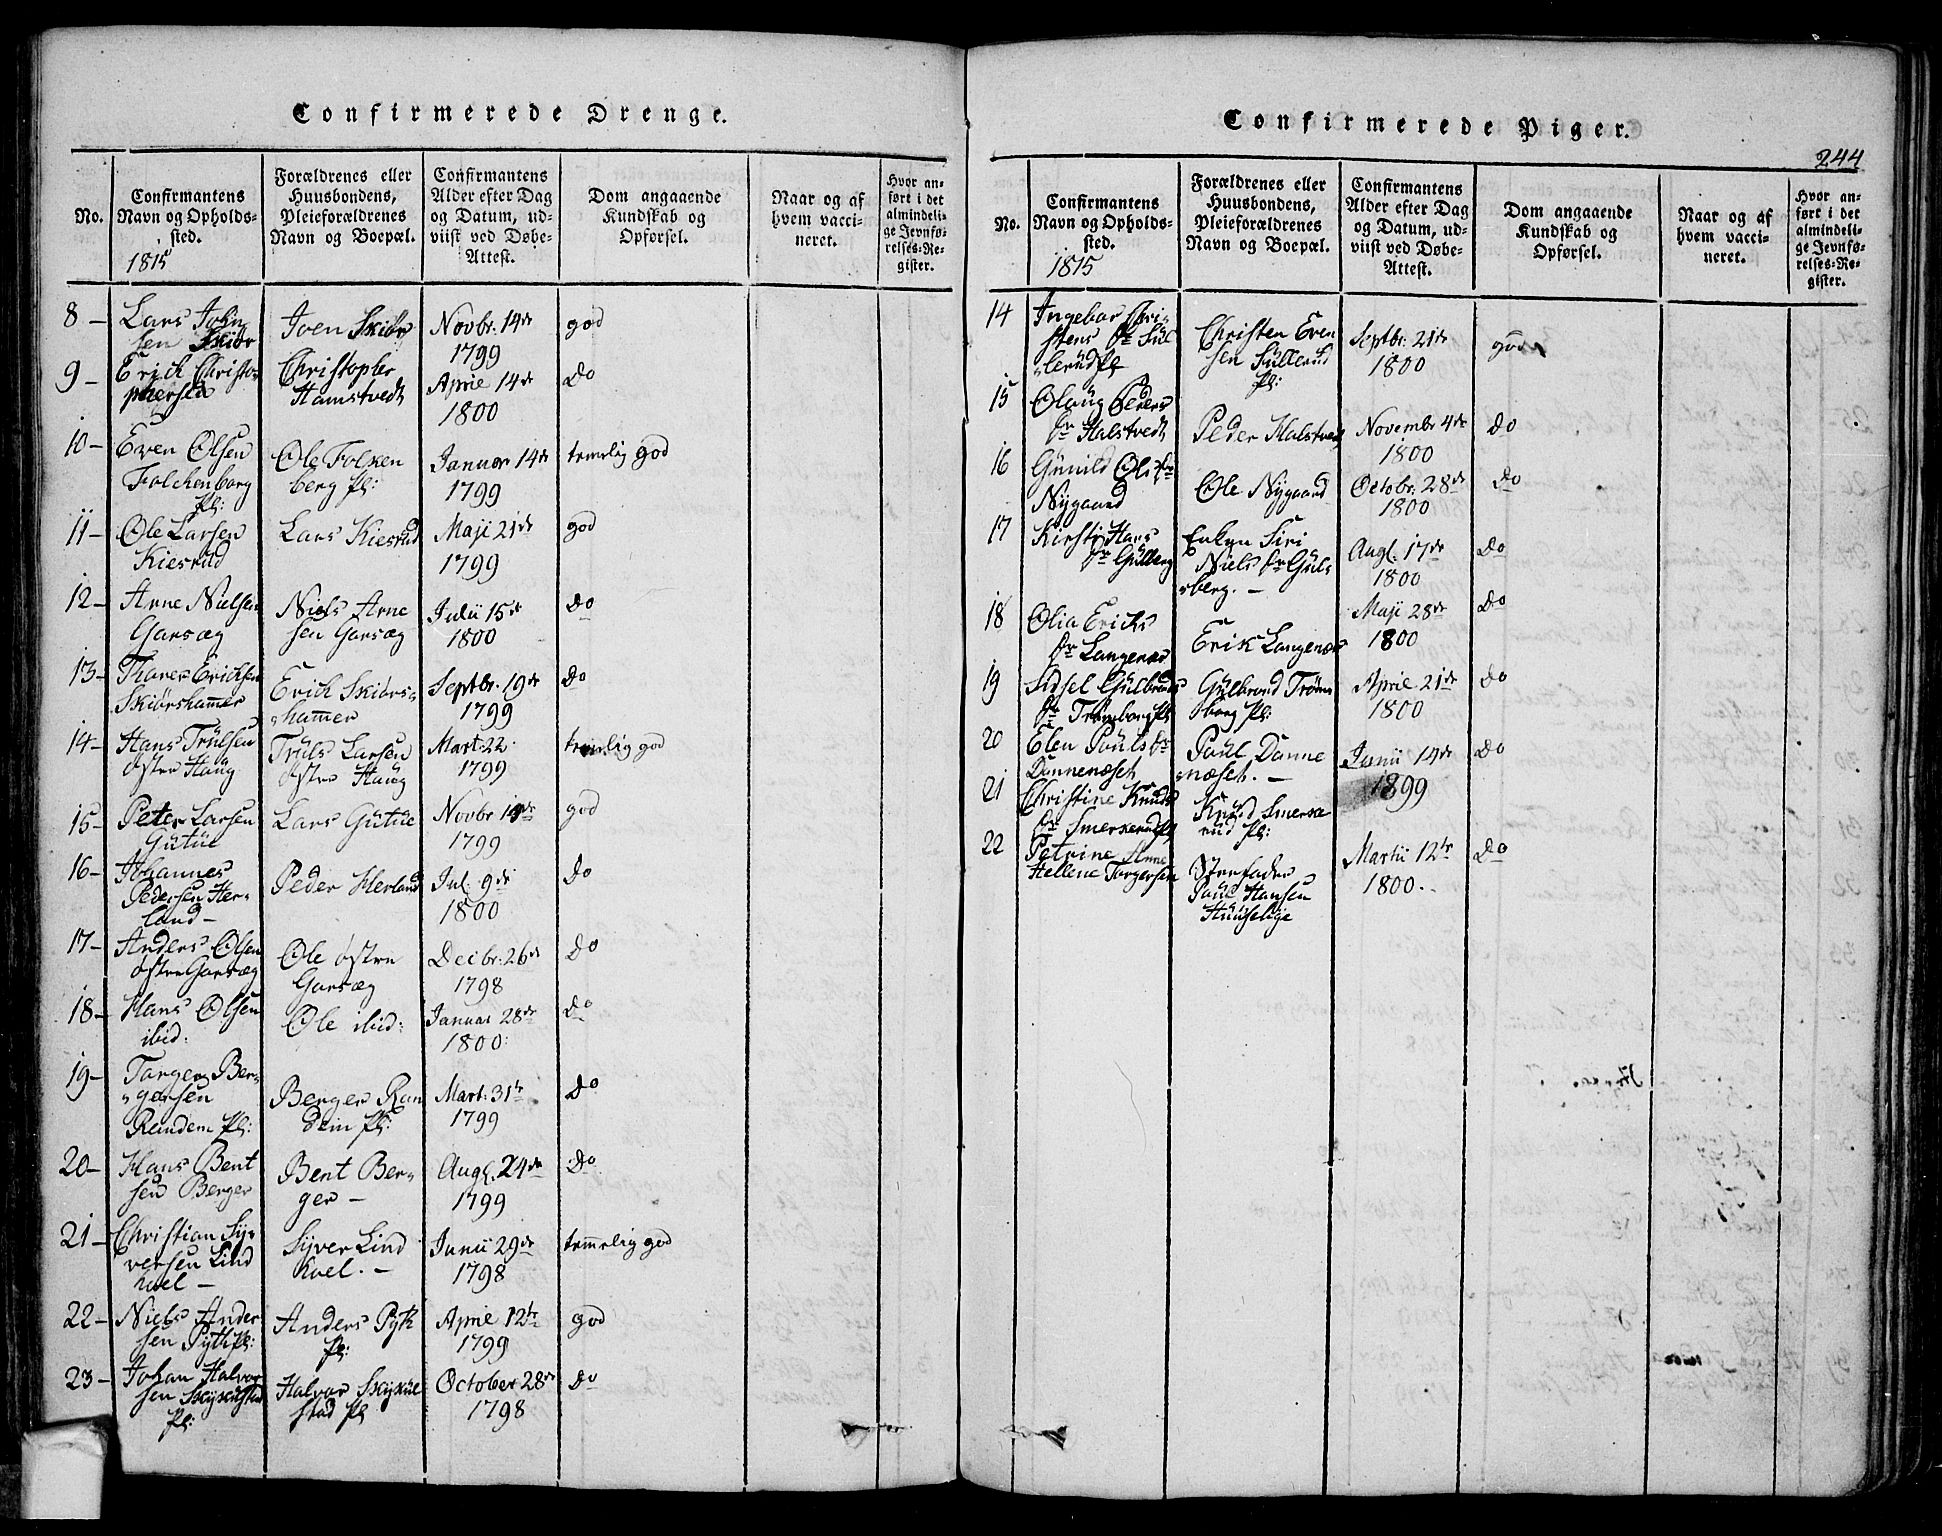 Confirmerede Drenge.
No.
Confirmantens
Navn og Opholds-
sted.
1815
Forældrenes eller
Huusbondens,
Pleieforældrenes
Navn og Boepæl.
Confirmantens
Alder efter Dag
og Datum, ud-
viist ved Døbe-
Attest.
Dom angaaende
Kundskab og
Opførsel.
Naar og af
hvem vacci-
neret.
Hvor an-
ført i det
almindeli-
ge Jevnfø-
relses-Re-
gister.
8 - Lars John
sen Skiør
Joen Skiør
Novbr. 14de
1799
god
9 - Erich Christo-
phersen
Christopher
Hamstvedt
April 14de
1800
Do
10 - Even Olsen
Folchenborg
pl:
Ole Folken
berg pl:
Januar 14de
1799
temelig god
11 - Ole Larsen
Kiesrud
Lars Kiesrud
Maji 21de
1799
god
12 - Arne Nielsen
Garsæg
Niels Arne
sen Garsæg
Julii 15de
1800
Do
13 - Thorer Erichsen
Skiørshammer
Erich Skiørs-
hammer
Septbr. 19de
1799
Do
14 - Hans Trulsen
østre Haug
Truls Larsen
østre Haug
Mart: 22.
1799
temelig god
15 - Peter Larsen
Gutue
Lars Gutue
Novbr 14de
1799
god
16 - Johannes
Pedersen Her-
land -
Peder Herland
Jul. 9de
1800
Do
17 - Anders Olsen
østre Garsæg
Ole østre
Garsæg
Decbr. 26de
1798
Do
18 - Hans Olsen
ibid:
Ole ibid:
Januar 28de
1800:
Do
19 - Torger Ber-
gersen
Rendem pl:
Berger Ran
dem pl:
Mart: 31te
1799
Do
20 - Hans Bent
sen Berger
Bent Ber-
ger -
Augl. 24de
1799
Do
21 - Christian Syr
versen Lind
huel -
Syver Lind
huel. -
Junii 29de
1798
temelig god
22 - Niels Ander
sen Pyth pl:
Anders Pyth
pl:
April 12te
1799
god
23 - Johan Halvor
sen Skyskulstad
pl:
Halvor Skyskul
stad pl
October 28de
1798
Do
Confirmerede Piger.
244
No.
Confirmantens
Navn og Opholds-
sted.
1815
Forældrenes eller
Huusbondens,
Pleieforældrenes
Navn og Boepæl.
Confirmantens
Alder efter Dag
og Datum, ud-
viist ved Døbe-
Attest.
Dom angaaende
Kundskab og
Opførsel.
Naar og af
hvem vacci-
neret.
Hvor an-
ført i det
almindeli-
ge Jevnfø-
relses-Re-
gister.
14 Ingebor Chri-
stens dr Sul
lerud pl
Christen Even
sen Sullerud
pl:
Septbr. 21de
1800
god
15 Olaug Peders
dr Halstvedt
Peder Halstvedt
Novembr 4de
1800
Do
16 Gunild Ols dr
Nygaard
Ole Nygaard
Octobr. 28de
1800
Do
17 Kirsti Hans
dr Gulberg
Enken Siri
Niels dr Guls
berg. -
Augl. 17de
1800
Do
18 Olia Erichs
dr Langenæs
Erik Langenæs
Maji 28de
1800
Do
19 Sidsel Gulbrands
dr Trømborg pl
Gulbrand Trøm
borg pl:
April 21de
1800
Do
20 Elen Pouls dr
Dannenæset
Paul Danne
næset. -
Junii 14de
1899
Do
21 Christine Knuds
dr Smerkerud pl
Knud Smerke
rud pl:
22 Petrine Anne
Hellene Torgersen
Steefader
Paul Hansen
Huuselije
Martii 12te
1800.
Do